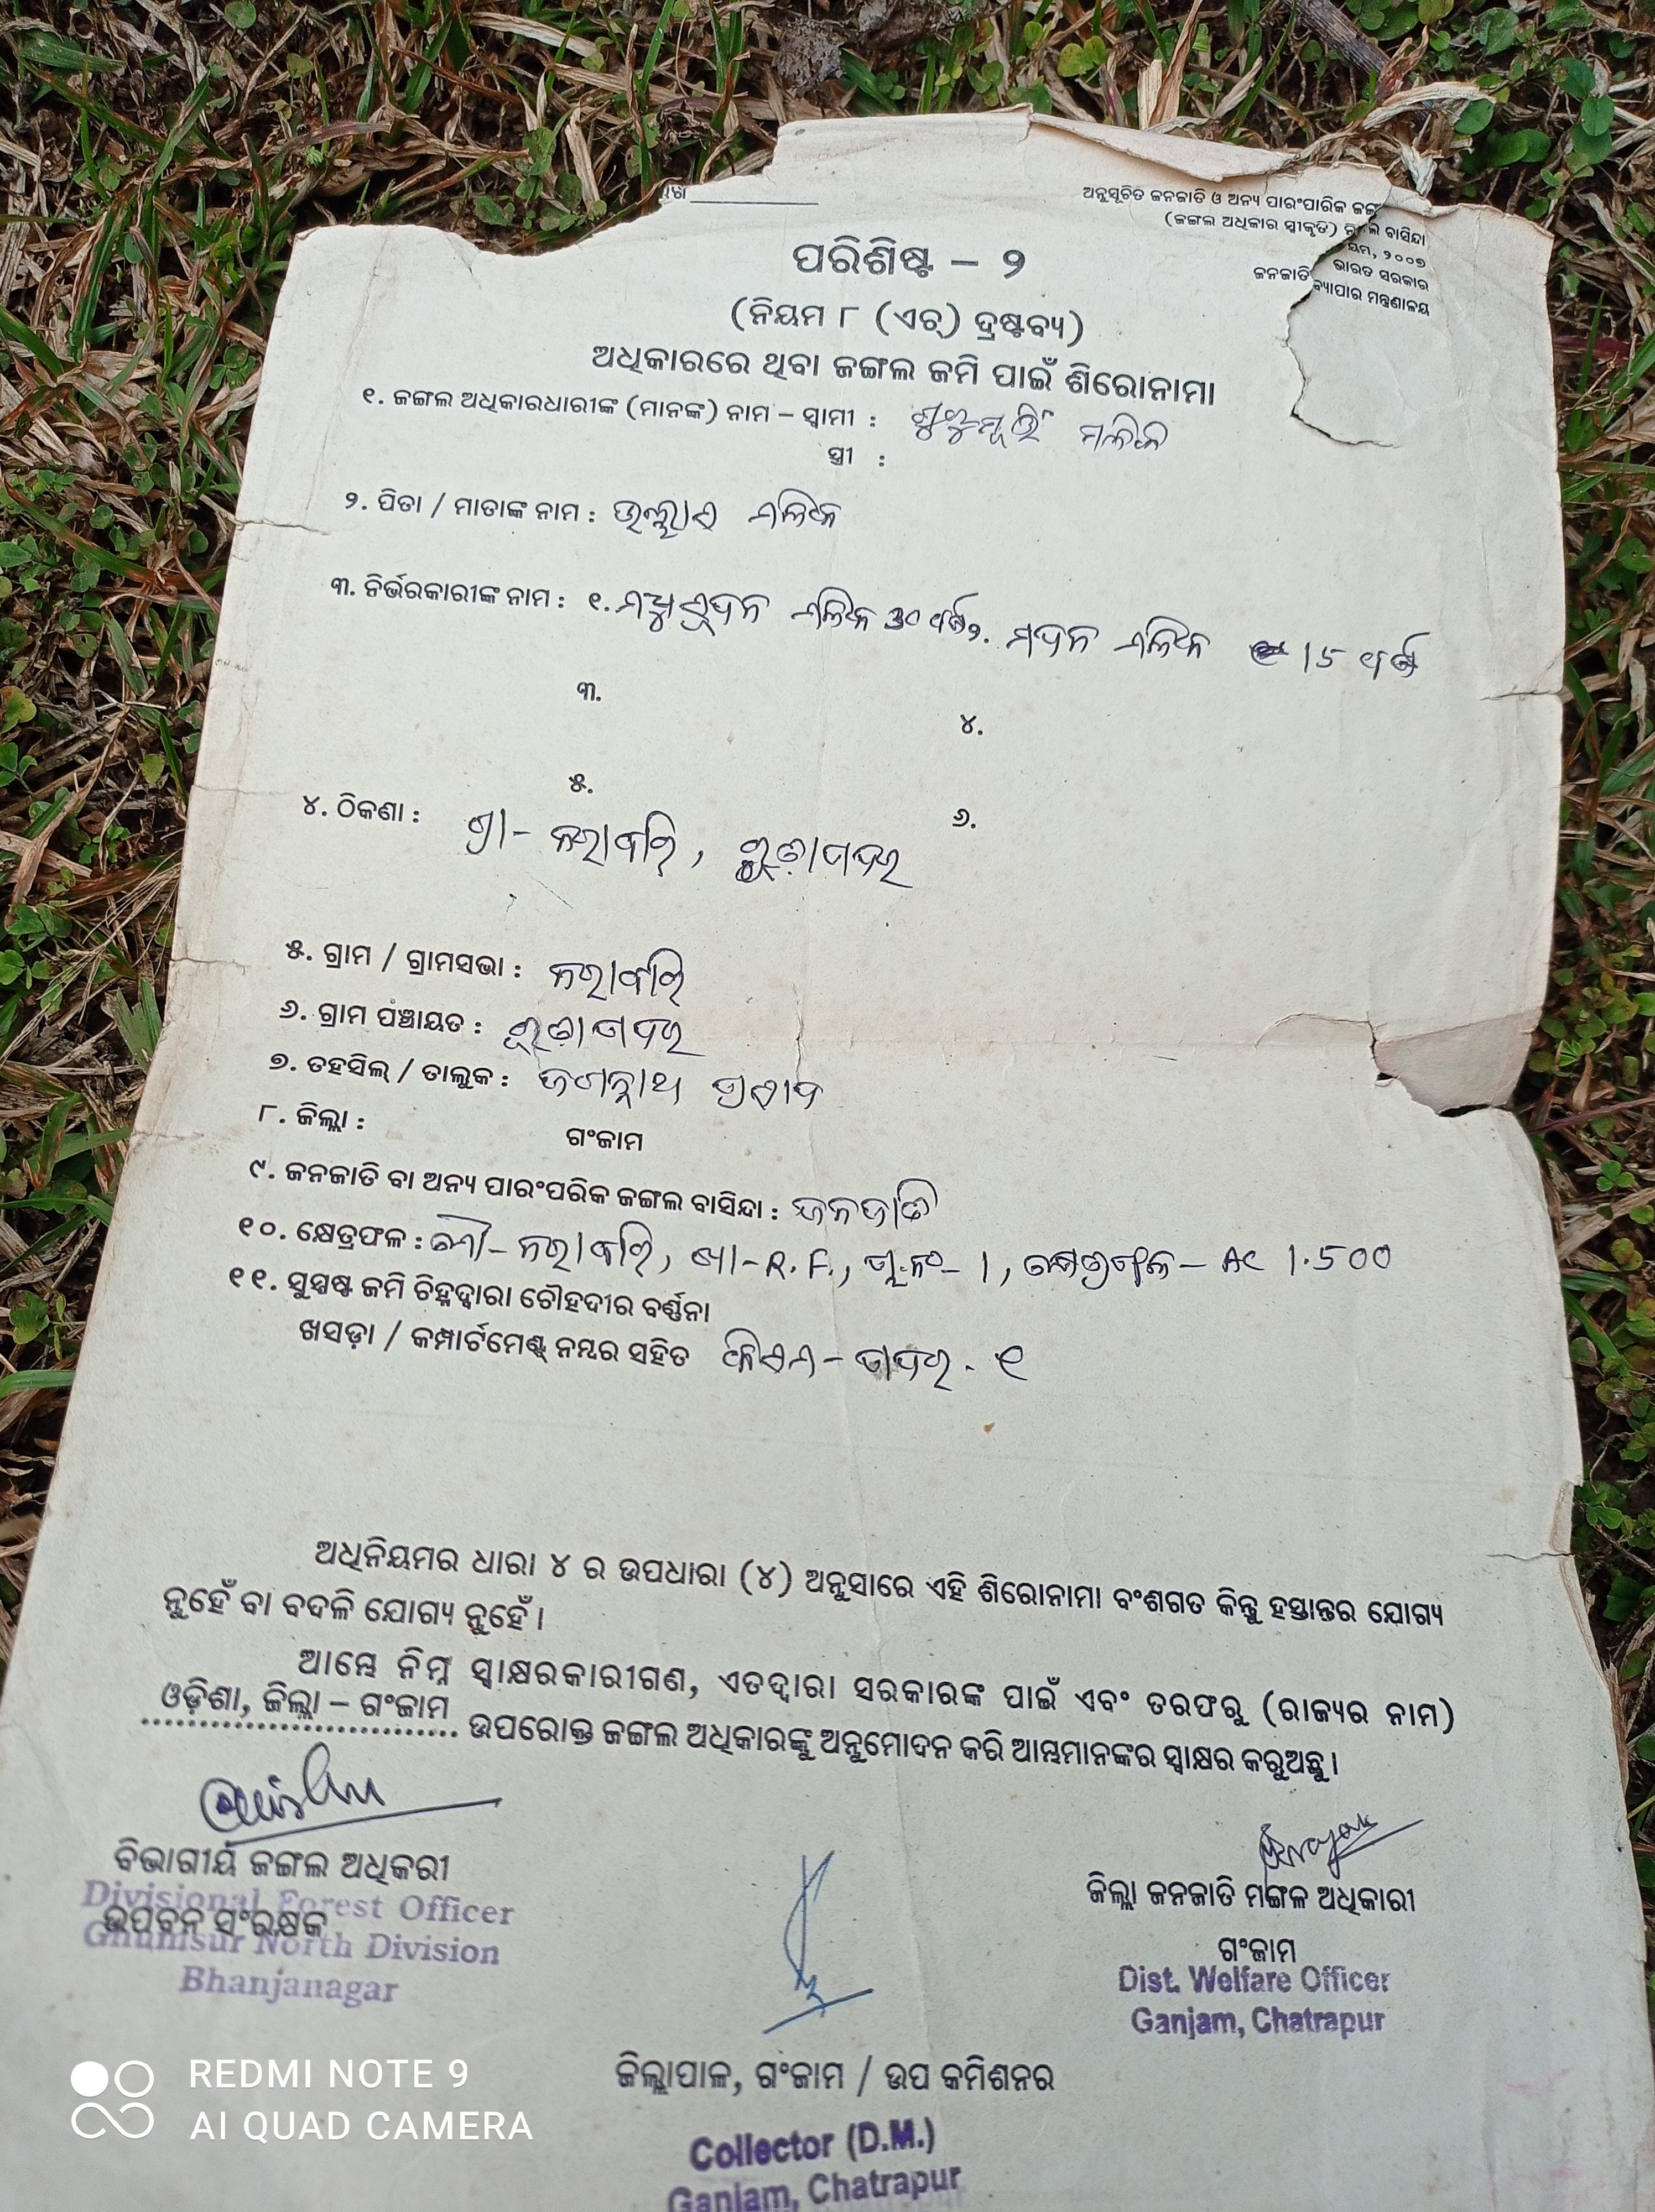 ଅନୁସୂଚିତ ଜନଜାତି ଓ ଅନ୍ୟ ପାରଂପାରିକ ଜଙ୍ଗଲ ବାସିନ୍ଦା
(ଜଙ୍ଗଲ ଅଧିକାର ସ୍ୱୀକୃତି) ୨୦୦୭
ଭାରତ ସରକାର
ଜନଜାତି ବ୍ୟାପାର ମନ୍ତ୍ରଣାଳୟ
ପରିଶିଷ୍ଟ – ୨
(ନିୟମ ୮ (ଏଚ୍) ଦ୍ରଷ୍ଟବ୍ୟ)
ଅଧିକାରରେ ଥିବା ଜଙ୍ଗଲ ଜମି ପାଇଁ ଶିରୋନାମା
୧. ଜଙ୍ଗଲ ଅଧିକାରଧାରୀଙ୍କ (ମାନଙ୍କ) ନାମ – ସ୍ୱାମୀ : ମଲିକ
ସ୍ତ୍ରୀ :
୨. ପିତା / ମାତାଙ୍କ ନାମ : ମଲିକ
୩. ନିର୍ଭରକାରୀଙ୍କ ନାମ : ୧. ମଧୁସୂଦନ ମଲିକ ୩୦ ବର୍ଷ ୨. ମଦନ ମଲିକ 15 ବର୍ଷ
୩. ୪.
୫. ୬.
୪. ଠିକଣା : ଗ୍ରା-
୫. ଗ୍ରାମ / ଗ୍ରାମସଭା :
୬. ଗ୍ରାମ ପଞ୍ଚାୟତ :
୭. ତହସିଲ୍ / ତାଲୁକ : ଜଗନ୍ନାଥ ପ୍ରସାଦ
୮. ଜିଲ୍ଲା : ଗଂଜାମ
୯. ଜନଜାତି ବା ଅନ୍ୟ ପାରଂପରିକ ଜଙ୍ଗଲ ବାସିନ୍ଦା : ଜନଜାତି
୧୦. କ୍ଷେତ୍ରଫଳ : ମୌ- ଖା-R.F., ପ୍ଲ.ନଂ- 1, କ୍ଷେତ୍ରଫଳ – AC 1.500
୧୧. ସୁସ୍ପଷ୍ଟ ଜମି ଚିହ୍ନଦ୍ୱାରା ଚୌହଦୀର ବର୍ଣ୍ଣନା
ଖସଡ଼ା / କମ୍ପାର୍ଟମେଣ୍ଟ୍ ନମ୍ବର ସହିତ କିସମ –
ଅଧିନିୟମର ଧାରା ୪ ର ଉପଧାରା (୪) ଅନୁସାରେ ଏହି ଶିରୋନାମା ବଂଶଗତ କିନ୍ତୁ ହସ୍ତାନ୍ତର ଯୋଗ୍ୟ
ନୁହେଁ ବା ବଦଳି ଯୋଗ୍ୟ ନୁହେଁ ।
ଆମ୍ଭେ ନିମ୍ନ ସ୍ୱାକ୍ଷରକାରୀଗଣ, ଏତଦ୍ୱାରା ସରକାରଙ୍କ ପାଇଁ ଏବଂ ତରଫରୁ (ରାଜ୍ୟର ନାମ)
ଓଡ଼ିଶା, ଜିଲ୍ଲା – ଗଂଜାମ ଉପରୋକ୍ତ ଜଙ୍ଗଲ ଅଧିକାରଙ୍କୁ ଅନୁମୋଦନ କରି ଆମ୍ଭମାନଙ୍କର ସ୍ୱାକ୍ଷର କରୁଅଛୁ ।
ବିଭାଗୀୟ ଜଙ୍ଗଲ ଅଧିକରୀ
Divisional Forest Officer
ଉପବନ ସଂରକ୍ଷକ
Ghumsur North Division
Bhanjanagar
ଜିଲ୍ଲା ଜନଜାତି ମଙ୍ଗଳ ଅଧିକାରୀ
ଗଂଜାମ
Dist. Welfare Officer
Ganjam, Chatrapur
ଜିଲ୍ଲାପାଳ, ଗଂଜାମ / ଉପ କମିଶନର
Collector (D.M.)
Ganjam, Chatrapur
REDMI NOTE 9
AI QUAD CAMERA